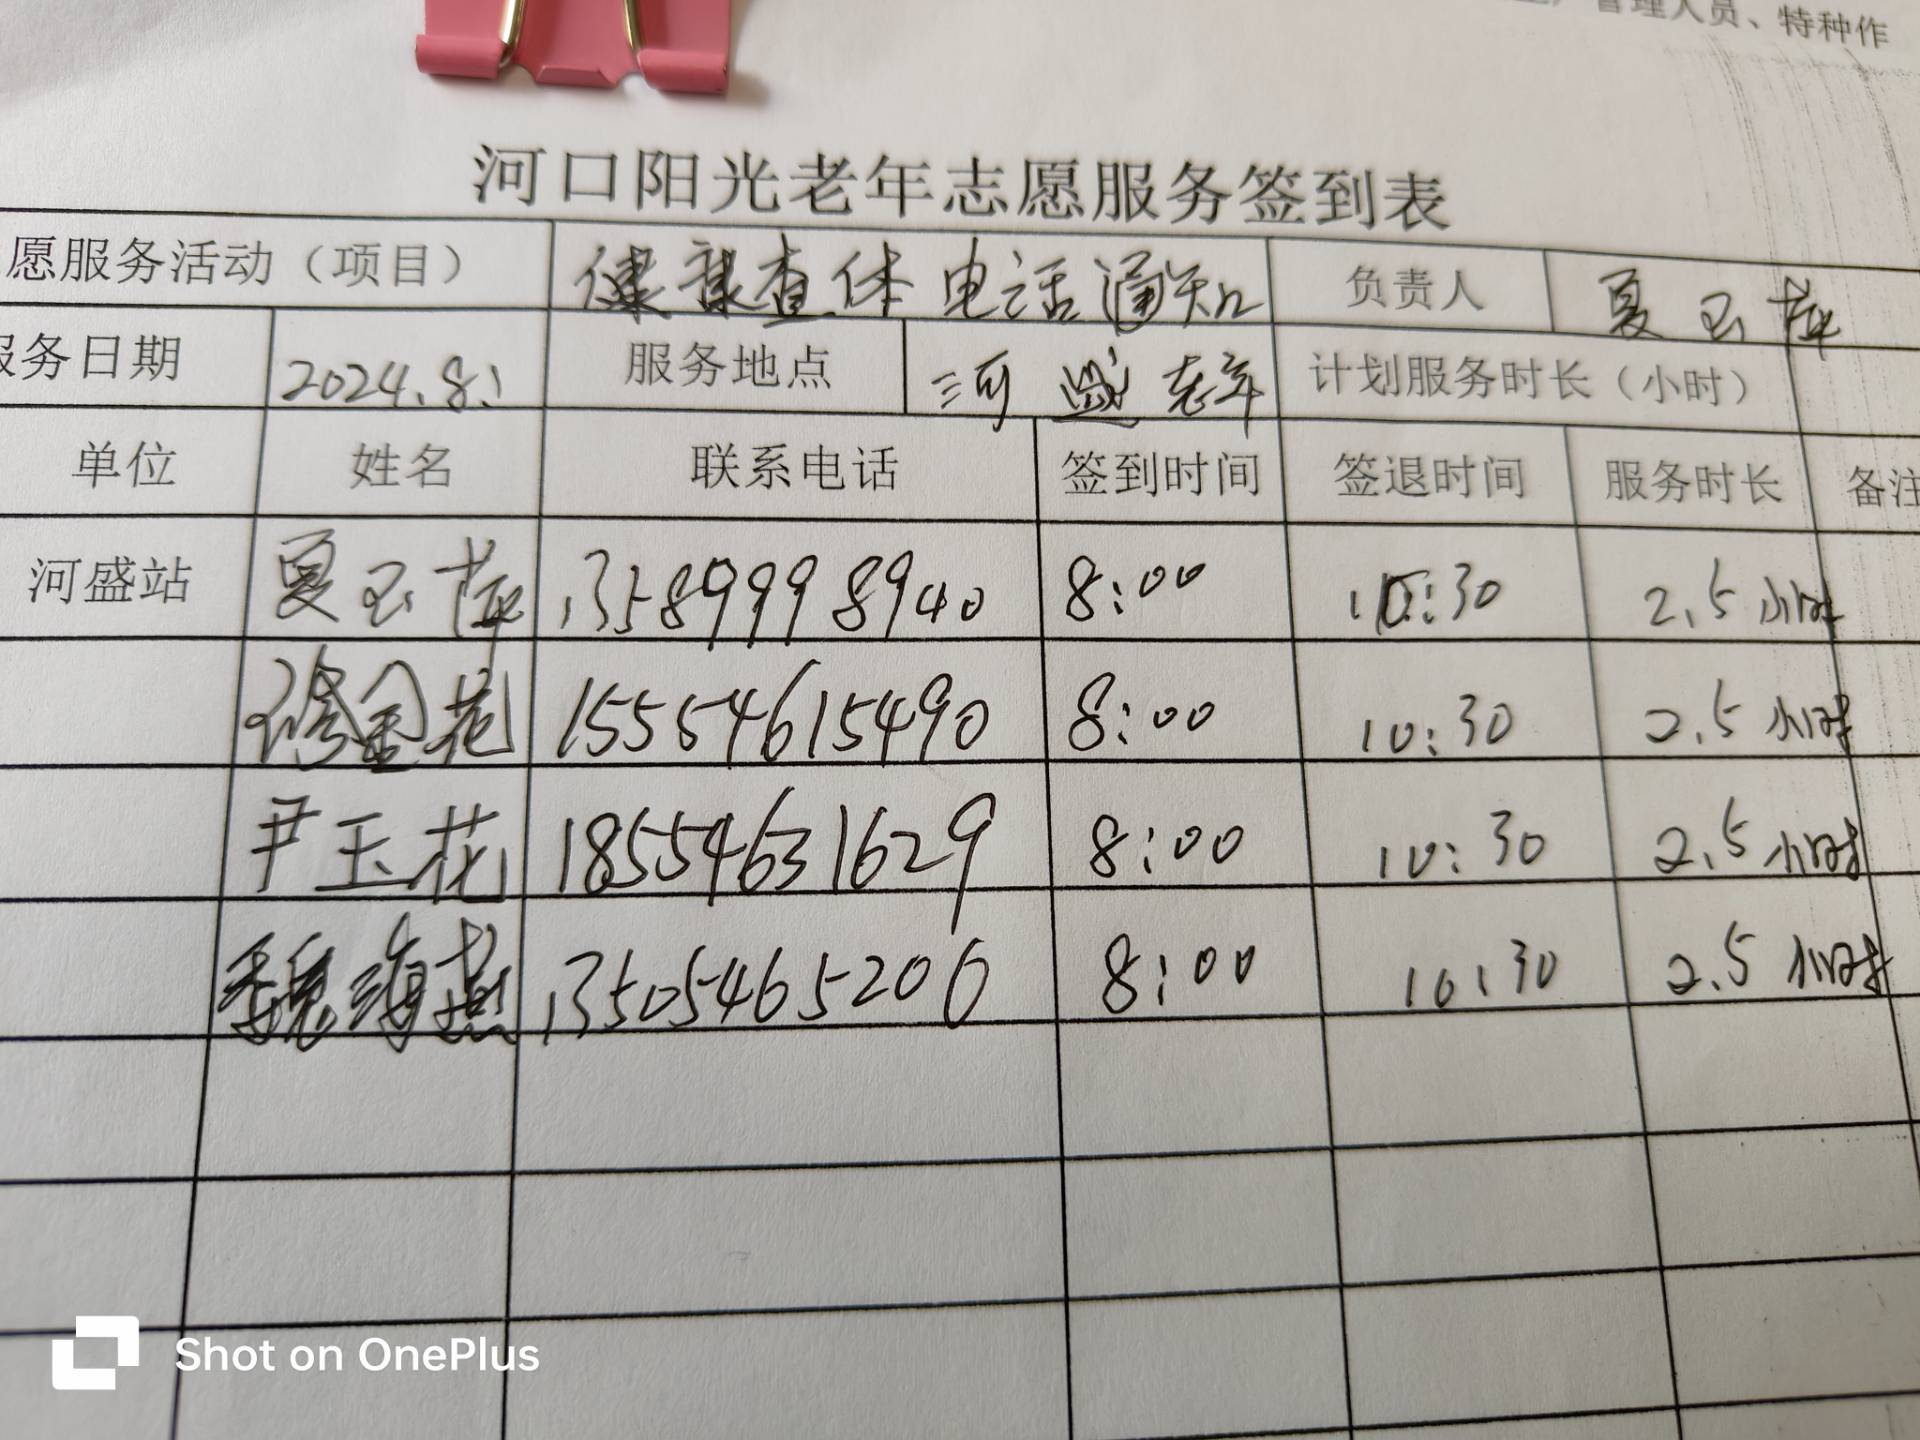 管理人员、特种作
河口阳光老年志愿服务签到表
愿服务活动（项目） 健康查体电话通知 负责人 夏玉萍
服务日期 2024.8.1 服务地点 河盛老年 计划服务时长（小时）
单位 姓名 联系电话 签到时间 签退时间 服务时长 备注
河盛站 夏玉萍 13589998940 8:00 10:30 2.5小时
徐金花 15554615490 8:00 10:30 2.5小时
尹玉花 18554631629 8:00 10:30 2.5小时
魏海燕 13505465206 8:00 10:30 2.5小时
Shot on OnePlus